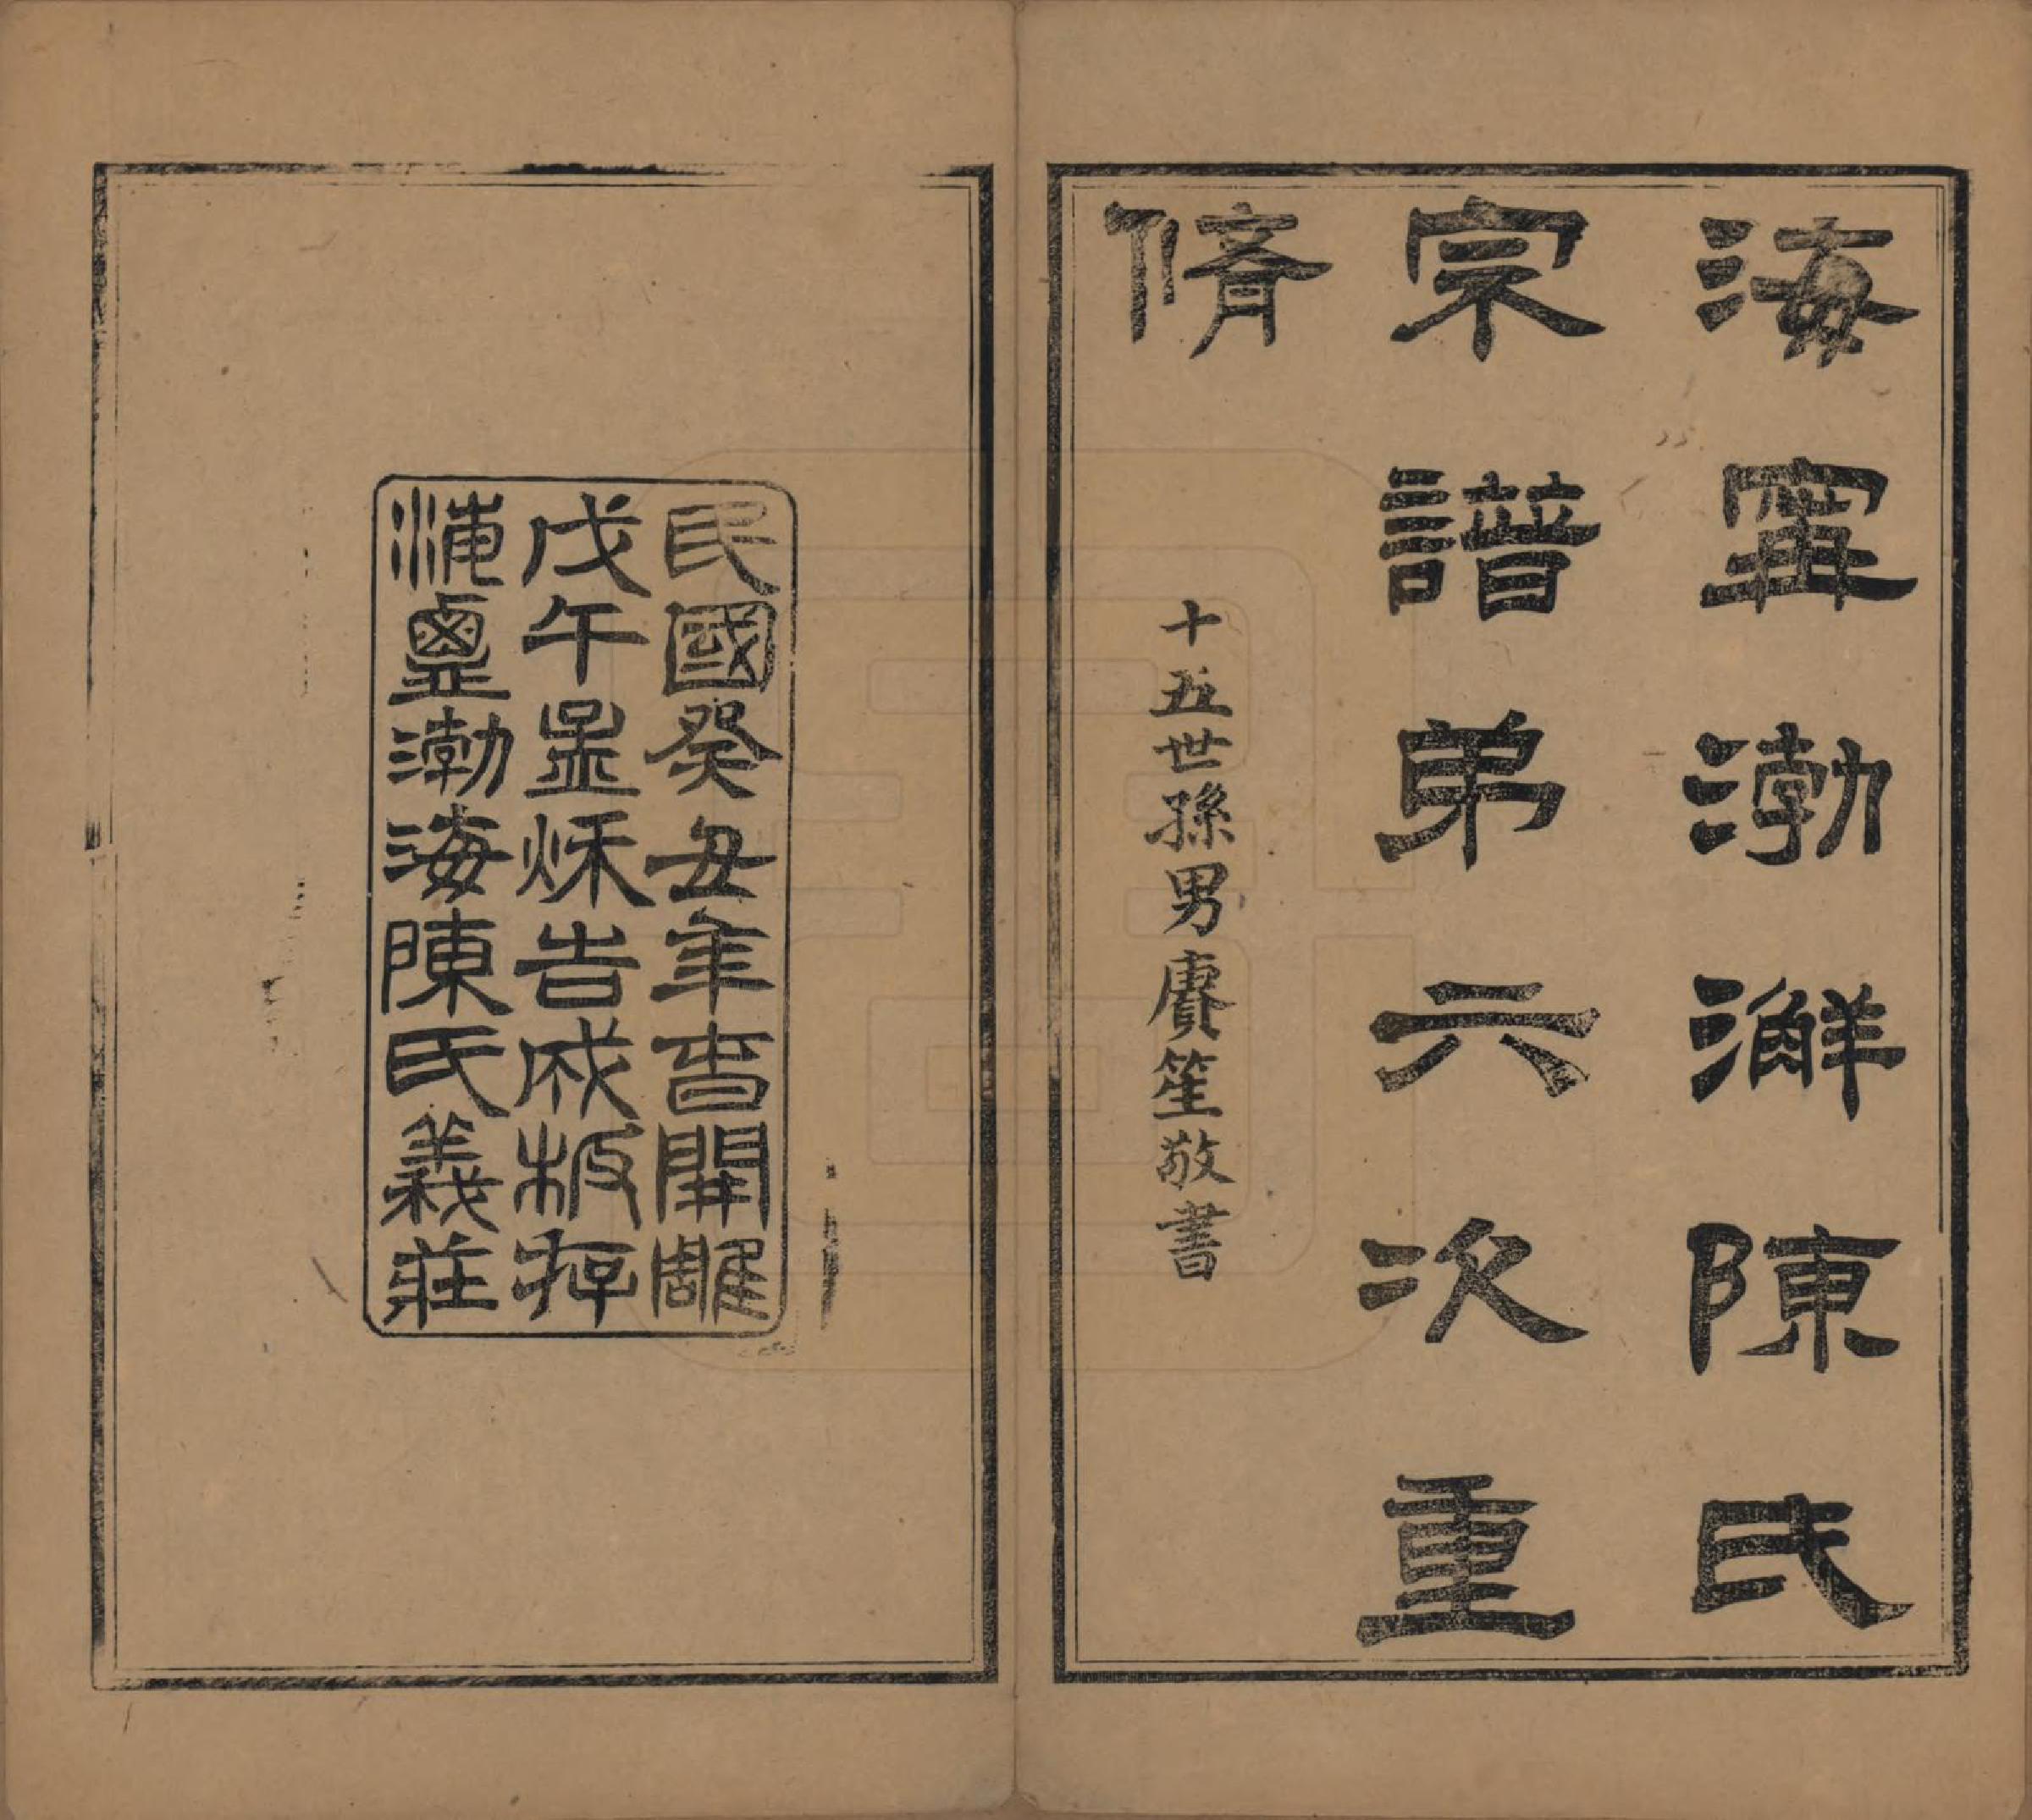 海甯渤澥陳氏
宗譜弟六次重
脩
十五世孫男賡笙敬書
民國癸丑年春開雕
戊午孟秋告成板存
鹽渤海陳氏義莊